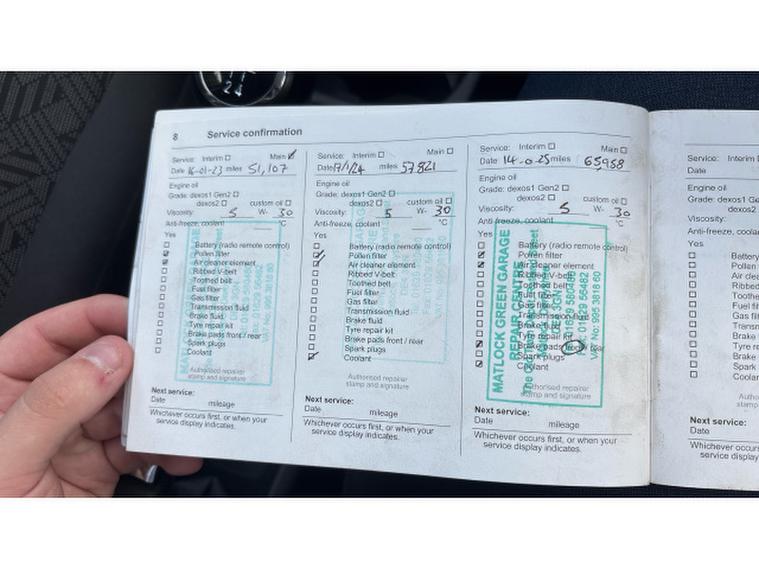 2 4
8 Service confirmation
Service: Interim ☐ Main ☑
Date 16-01-23 miles 51,107
Engine oil
Grade: dexos1 Gen2 ☐
dexos2 ☐ custom oil ☐
Viscosity: 5 W- 30
Anti-freeze, coolant °C
Yes
☐ Battery (radio remote control)
☑ Pollen filter
☑ Air cleaner element
☐ Ribbed V-belt
☐ Toothed belt
☐ Fuel filter
☐ Gas filter
☐ Transmission fluid
☐ Brake fluid
☐ Tyre repair kit
☐ Brake pads front / rear
☐ Spark plugs
☐ Coolant
Authorised repairer
stamp and signature
Next service:
Date mileage
Whichever occurs first, or when your
service display indicates.
Service: Interim ☐ Main ☐
Date 17/1/24 miles 57821
Engine oil
Grade: dexos1 Gen2 ☐
dexos2 ☐ custom oil ☐
Viscosity: 5 W- 30
Anti-freeze, coolant °C
Yes
☐ Battery (radio remote control)
☑ Pollen filter
☑ Air cleaner element
☐ Ribbed V-belt
☐ Toothed belt
☐ Fuel filter
☐ Gas filter
☐ Transmission fluid
☐ Brake fluid
☐ Tyre repair kit
☐ Brake pads front / rear
☐ Spark plugs
☑ Coolant
Authorised repairer
stamp and signature
Next service:
Date mileage
Whichever occurs first, or when your
service display indicates.
Service: Interim ☐ Main ☐
Date 14-0 25 miles 65,958
Engine oil
Grade: dexos1 Gen2 ☐
dexos2 ☐ custom oil ☐
Viscosity: 5 W- 30
Anti-freeze, coolant °C
Yes
☐ Battery (radio remote control)
☑ Pollen filter
☑ Air cleaner element
☐ Ribbed V-belt
☐ Toothed belt
☐ Fuel filter
☐ Gas filter
☐ Transmission fluid
☐ Brake fluid
☐ Tyre repair kit
☑ Brake pads front / rear
☐ Spark plugs
☑ Coolant
Authorised repairer
stamp and signature
MATLOCK GREEN GARAGE
REPAIR CENTRE
01629 580486
01629 56482
VAT No: 995 3818 60
Next service:
Date mileage
Whichever occurs first, or when your
service display indicates.
Service: Interim
Date
Engine oil
Grade: dexos
dexos2
Viscosity:
Anti-freeze, coola
Yes
☐ Battery
☐ Pollen
☐ Air cle
☐ Ribbe
☐ Toothe
☐ Fuel f
☐ Gas fi
☐ Transm
☐ Brake
☐ Tyre re
☐ Brake
☐ Spark
☐ Coolar
Next service:
Date
Whichever occurs
service display